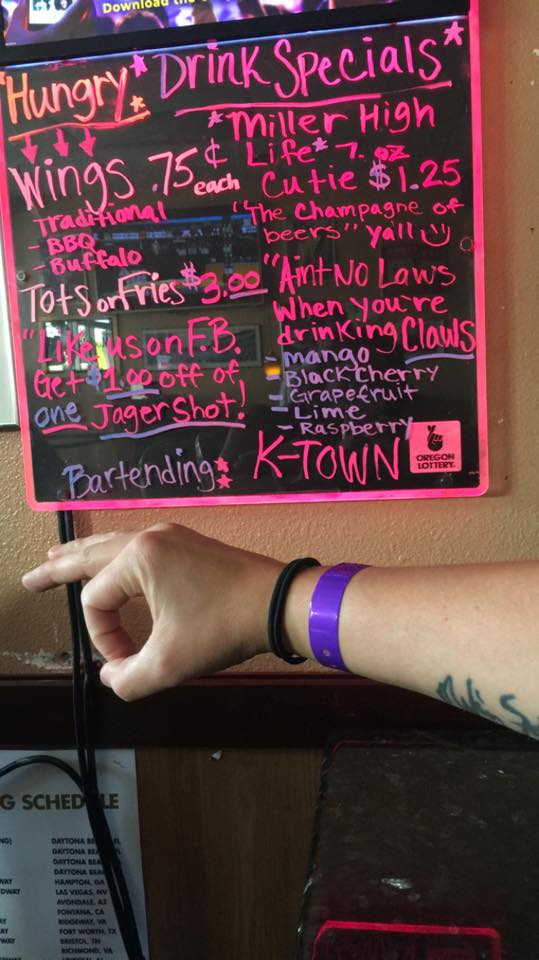 Download the
*Hungry*
Wings .75¢ each
Traditional
- BBQ
- Buffalo
Tots or Fries $3.00
"Like us on F.B.
Get $1.00 off of
one Jager Shot!
Bartending:
*Drink Specials*
*Miller High
Life* 7. oz
Cutie $1.25
"The Champagne of
beers" yall
"Aint No Laws
When you're
drinking Claws
- mango
- Black Cherry
- Grapefruit
- Lime
- Raspberry
K-TOWN
OREGON
LOTTERY
G SCHEDULE
DAYTONA BEA
DAYTONA BEA
DAYTONA BEA
DAYTONA BEA
WAY HAMPTON, GA
DWAY LAS VEGAS, NV
AVONDALE, AZ
FONTANA, CA
WAY RIDGEWAY, VA
FORT WORTH, TX
WAY BRISTOL, TN
RICHMOND, VA